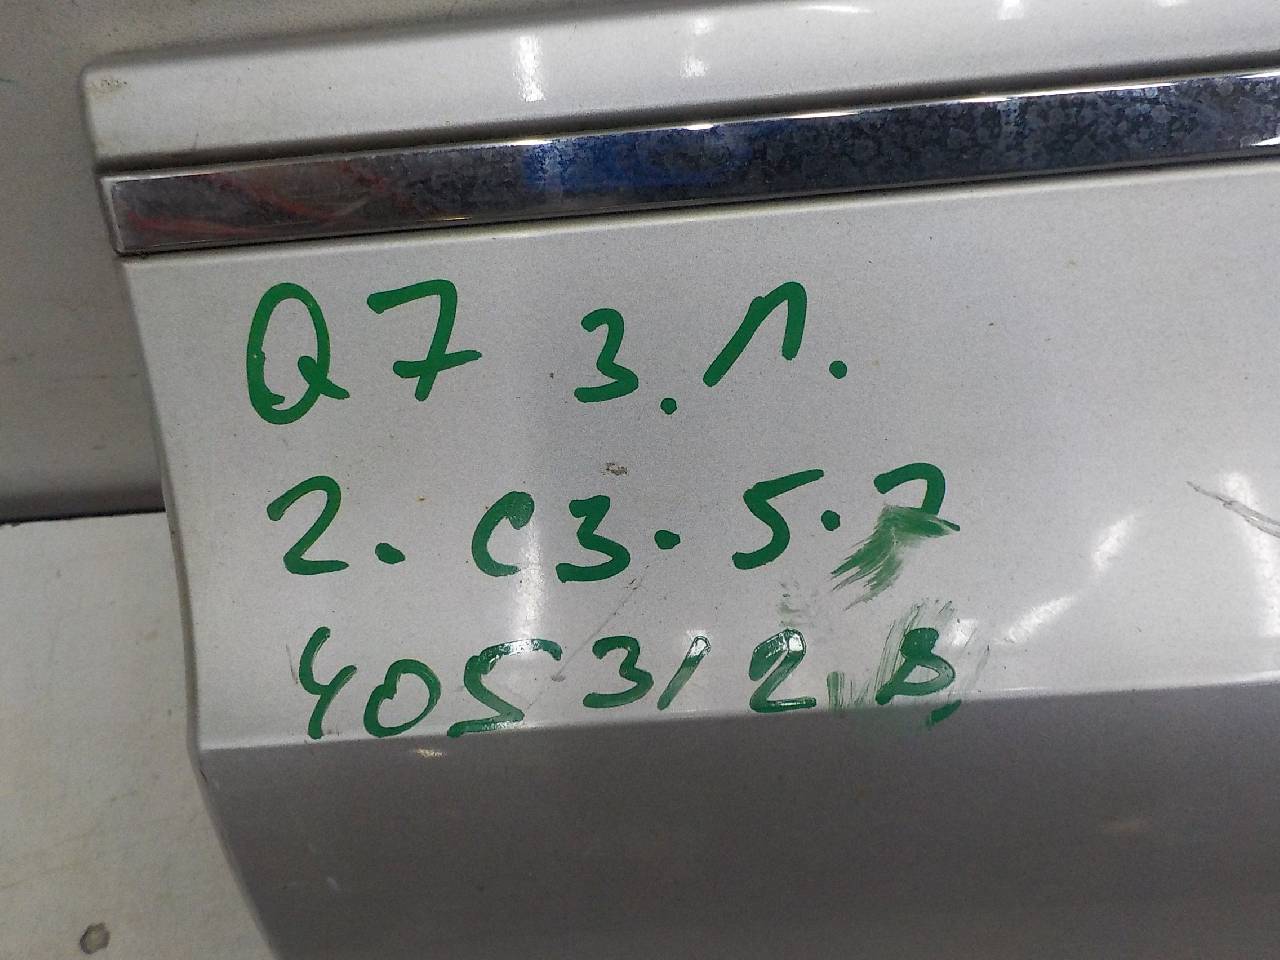 Q7 З.Л.
2. С3.5.7
4053128